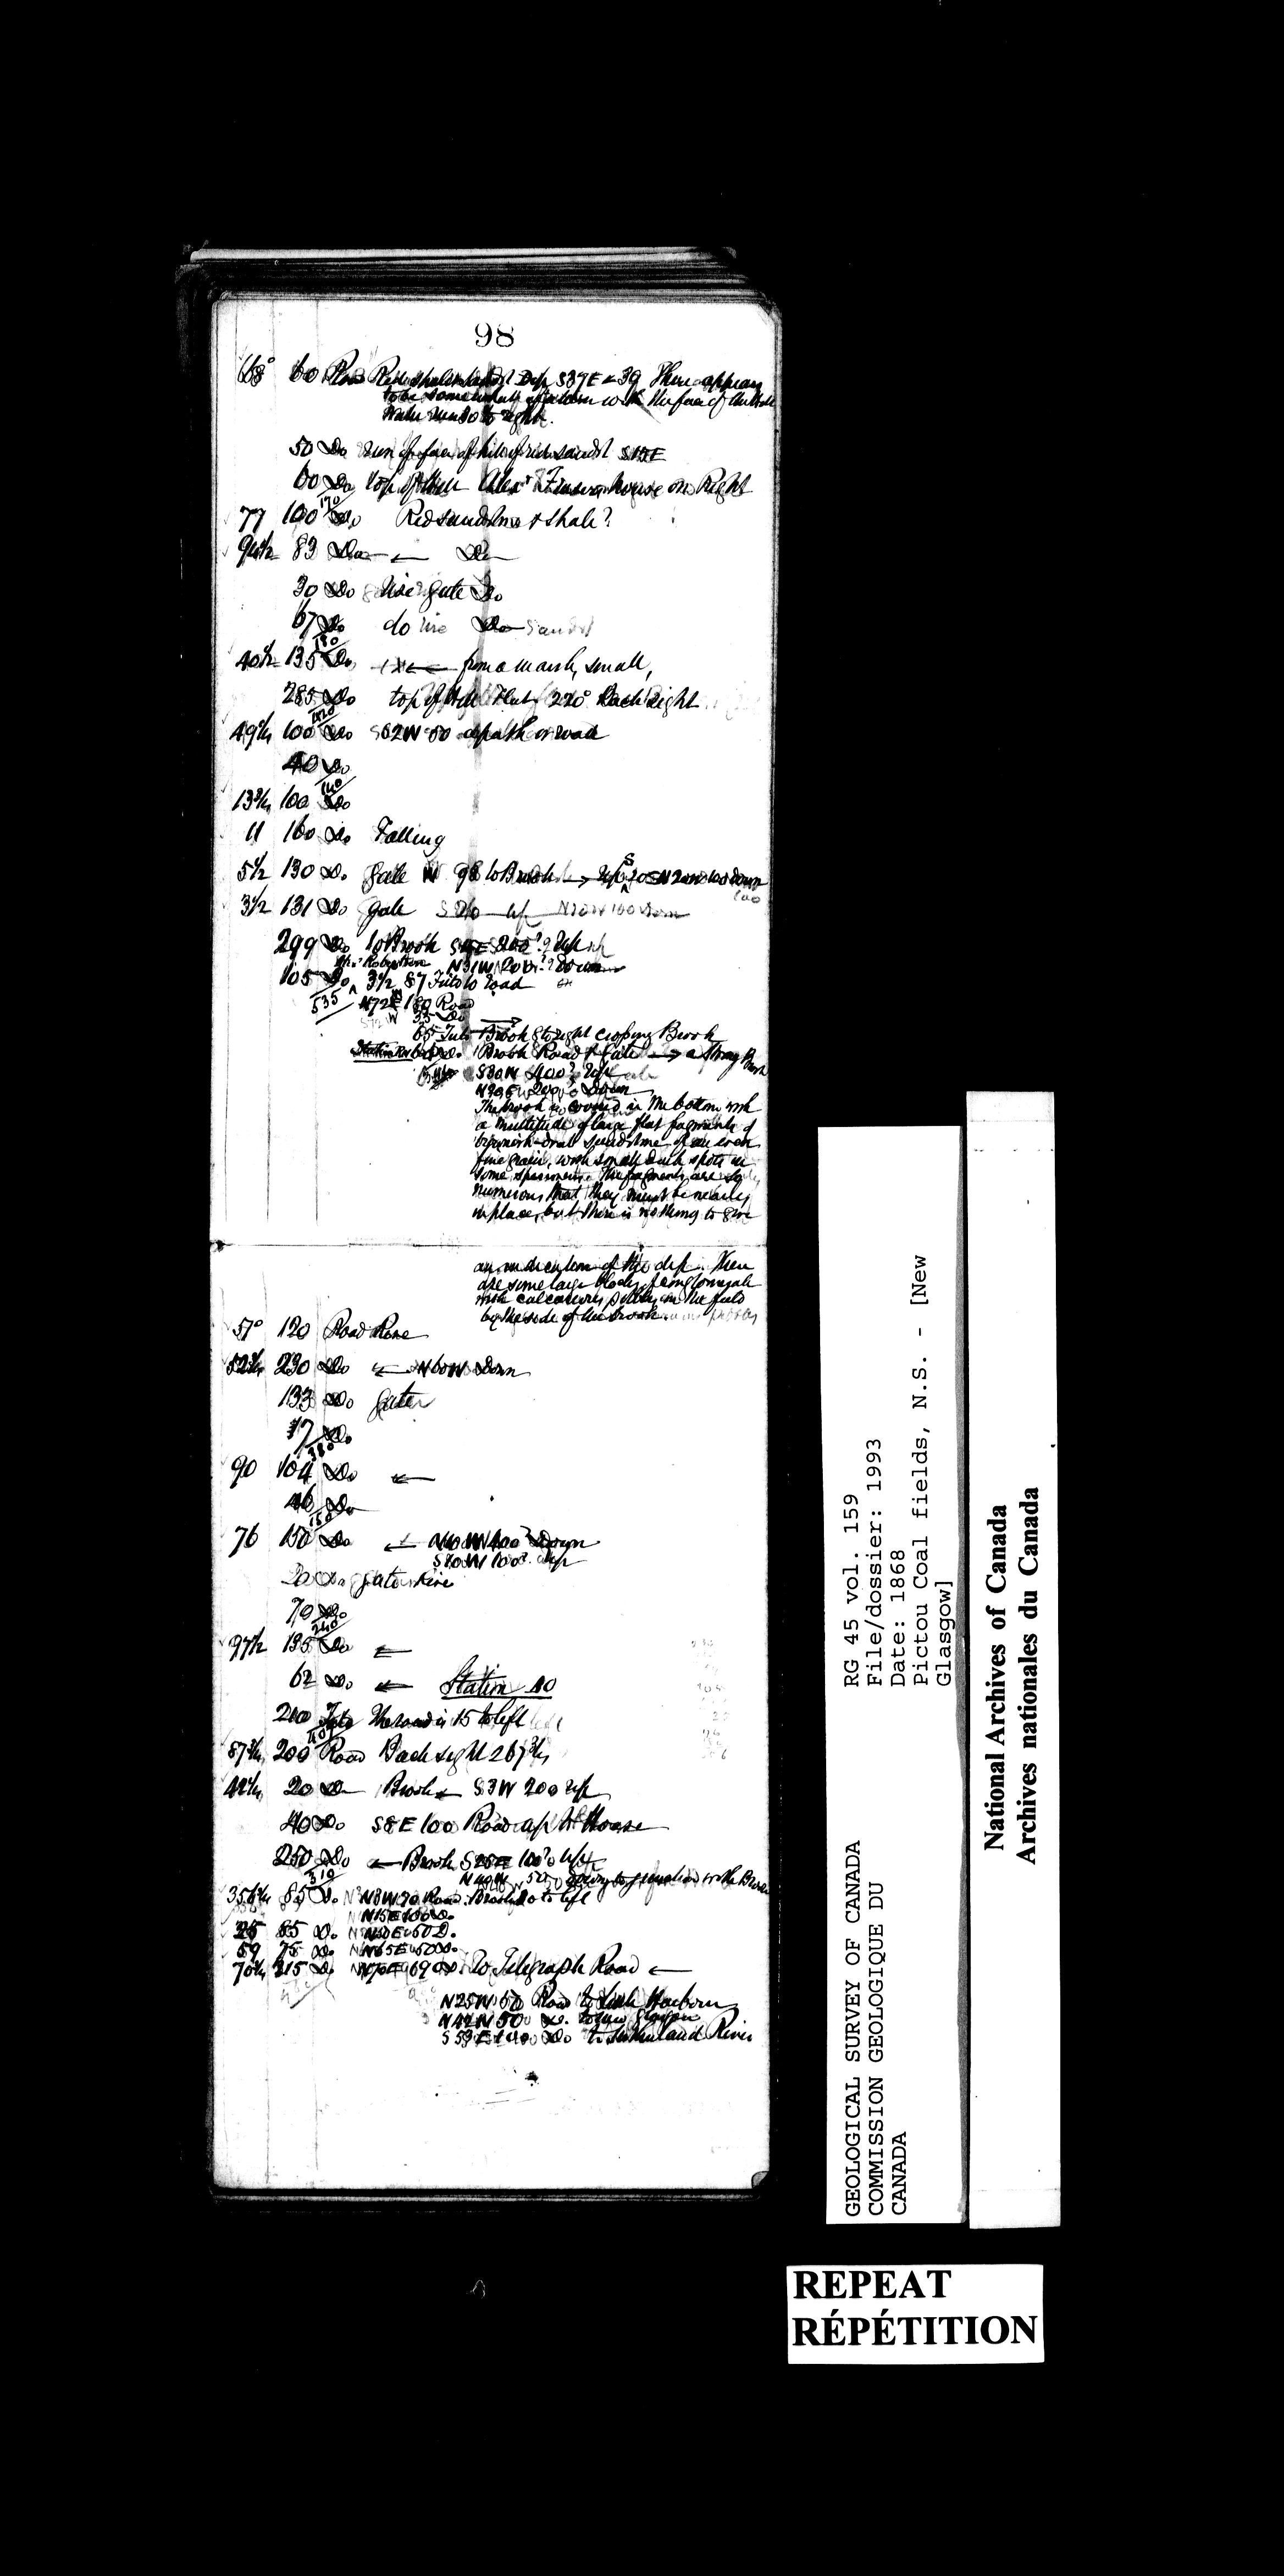 98
68° 60 Road Red shale & sandst Dip S39E < 39 There appears
to be somewhat of a turn with the face of the hill
Water runs to right.
50 Do run of face of hill of red sandst S15E
60 Do top of Hill Alexr Frasers house on Right
170
77 100 Do Red sandstone & shale?
94 1/2 83 Do ← Do
30 Do rise gate Do
67 Do do rise Do Sandst
180
40 1/2 135 Do ← from a marsh, small,
285 Do top of Hill Flat 220° Back sight
420
49 1/4 100 Do S62W 50 a path or road
40 Do
140
13 3/4 100 Do
11 160 Do Falling
5 1/2 130 Do Gate W 98 to Brook → Up S 20 down
100
3 1/2 131 Do gate S 20 up N20W 100 down
299 Do to Brook S15E 200? Up
N31W 200? Down
105 Do 3 1/2 87 Into to road
535
N72 180 Road
35 Do
65 Into Brook to right crossing Brook
Do. Brook Road & Gate → a strong Brook
S30W 400? Up
N30E 200 Down
The brook is covered in the bottom with
a multitude of large flat fragments of
brownish-drab sandstone of an even
fine grain, with small dark spots in
some specimens. The fragments are so
numerous that they must be nearly
in place, but there is nothing to give
an indication of the dip. There
are some large blocks of conglomerate
with calcareous pebbles in the field
by the side of the brook
57° 120 Road Rise
52 3/4 230 Do ← N60W Down
133 Do Gate
17 Do
380
90 104 Do ←
46 Do
150
76 150 Do ← N40W 400? Down
S80W 100? Up
20 Do gate rise
70 Do
240
97 1/2 135 Do ←
62 Do ← Station 10
200 Into The road is 15 to left
87 3/4 200 Road Back sight 267 3/4
42 1/4 20 Do Brook ← S3W 200 up
40 Do S8E 100 Road up to House
250 Do ← Brook S25E 100? Up
310
N40W 50 down to junction with the Brook
356 1/4 85 Do N3W 70 Road. Brook 20 to left
N15E 100 Do.
25 85 Do N30E 50 D.
59 75 Do N65E 50 Do.
70 1/4 215 Do N70E 69 Do. To Telegraph Road ←
N25W 50 Road to Little Harbour
N42W 50 Do. to New Glasgow
S59E 100 Do to Sutherland River
GEOLOGICAL SURVEY OF CANADA
COMMISSION GEOLOGIQUE DU
CANADA
RG 45 vol. 159
File/dossier: 1993
Date: 1868
Pictou Coal fields, N.S. - [New
Glasgow]
National Archives of Canada
Archives nationales du Canada
REPEAT
RÉPÉTITION